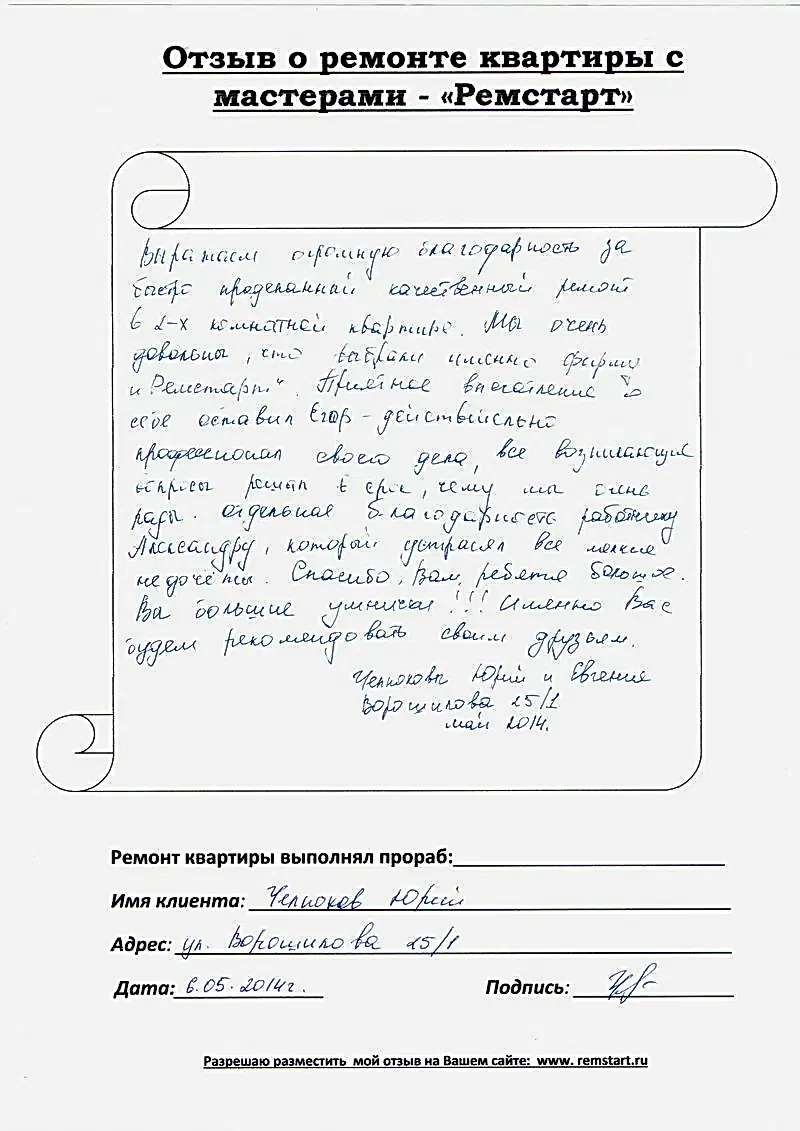 Отзыв о ремонте квартиры с
мастерами - «Ремстарт»
Выражаем огромную благодарность за
быстро проделанный качественный ремонт
в 2-х комнатной квартире. Мы очень
довольны, что выбрали именно фирму
"Ремстарт". Приятное впечатление о
себе оставил Егор - действительно
профессионал своего дела, все возникающие
вопросы решал в срок, чему мы очень
рады. Отдельная благодарность работнику
Александру, который устранял все мелкие
недочёты. Спасибо, Вам, ребята большое.
Вы большие умнички!!! Именно Вас
будем рекомендовать своим друзьям.
Юрий и Евгения
Ворошилова 25/1
май 2014.
Ремонт квартиры выполнял прораб:
Имя клиента: Юрий
Адрес: ул. Ворошилова 25/1
Дата: 6.05.2014г. Подпись:
Разрешаю разместить мой отзыв на Вашем сайте: www. remstart.ru